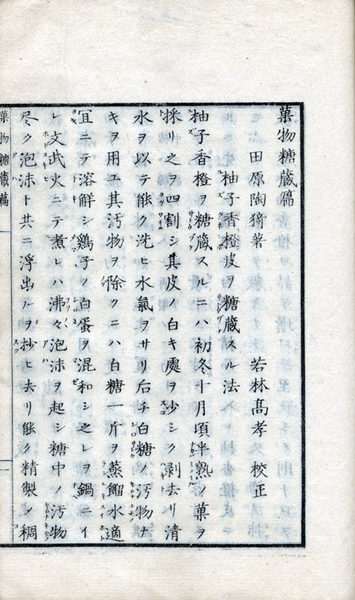 菓物糖蔵篇
田原陶猗著　若林高孝校正
柚子香橙皮ヲ糖蔵スル法
柚子香橙ヲ糖蔵スルニハ初冬十月頃半熟ノ菓ヲ
採リ之ヲ四割シ其皮ノ白キ處ヲ少シク剥去リ清
水ヲ以テ能ク洗ヒ水氣ヲサリ后チ白糖ノ汚物ナ
キヲ用ユ其汚物ヲ除クニハ白糖一斤ヲ蒸餾水適
宜ニテ溶解シ鷄子ノ白蛋ヲ混和シ之レヲ鍋ニイ
レ文武火ニテ煮レハ沸々泡沫ヲ起シ糖中ノ汚物
尽ク泡沫ト共ニ浮出ルヲ抄ヒ去リ能ク精製シ稠
菓物糖蔵篇
一